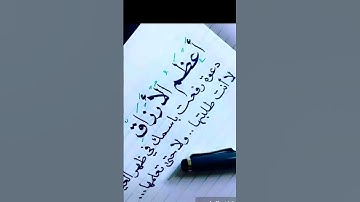 أَعْظَمُ الْأَرْزَاقِ
دعوة رفعت باسمك في ظهر الغيب
لا أنت طلبتها .. ولا حتى تعلمها ...